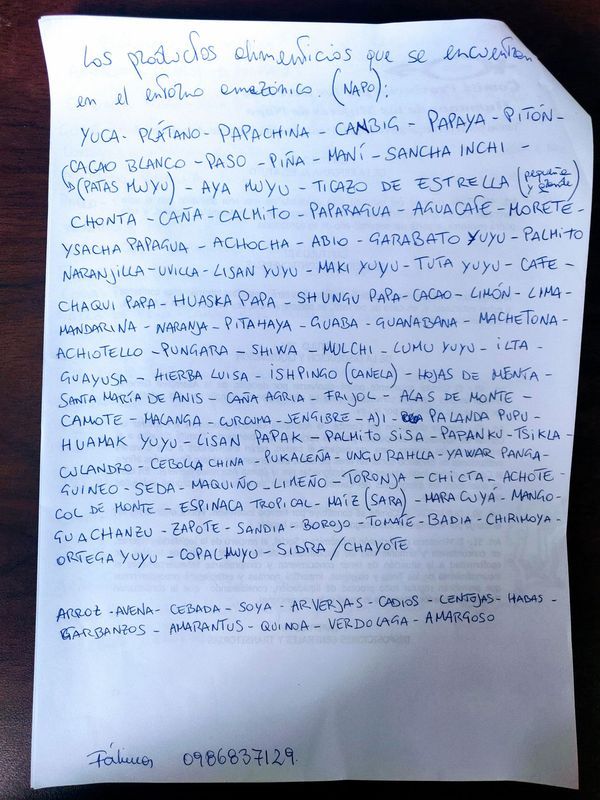 Los productos alimenticios que se encuentran
en el entorno amazónico. (NAPO):
YUCA - PLÁTANO - PAPACHINA - CANBIG - PAPAYA - PITÓN -
(CACAO BLANCO - PASO - PIÑA - MANÍ - SANCHA INCHI -
↳ (PATAS MUYU) - AYA MUYU - TIGAZO DE ESTRELLA (pequeña y grande)
CHONTA - CAÑA - CALMITO - PAPARAGUA - AGUACATE - MORETE -
YSACHA PAPAGUA - ACHOCHA - ABIO - GARABATO YUYU - PALMITO
NARANJILLA - UVILLA - LISAN YUYU - MAKI YUYU - TUTA YUYU - CAFE -
CHAQUI PAPA - HUASKA PAPA - SHUNGU PAPA - CACAO - LIMÓN - LIMA -
MANDARINA - NARANJA - PITAHAYA - GUABA - GUANABANA - MACHETONA -
ACHIOTELLO - PUNGARA - SHIWA - MULCHI - LUMU YUYU - ILTA -
GUAYUSA - HIERBA LUISA - ISHPINGO (CANELA) - HOJAS DE MENTA -
SANTA MARÍA DE ANIS - CAÑA AGRIA - FRIJOL - ALAS DE MONTE -
CAMOTE - MALANGA - CURCUMA - JENGIBRE - AJI - PALANDA PUPU -
HUAMAK YUYU - LISAN PAPAK - PALMITO SISA - PAPANKU - TSIKLA -
CULANDRO - CEBOLLA CHINA - PUKALEÑA - UNGURAHLLA - YAWAR PANGA -
GUINEO - SEDA - MAQUIÑO - LIMEÑO - TORONJA - CHICTA - ACHOTE -
COL DE MONTE - ESPINACA TROPICAL - MAÍZ (SARA) - MARACUYÁ - MANGO -
GUACHANZU - ZAPOTE - SANDIA - BOROJO - TOMATE - BADIA - CHIRIMOYA -
ORTEGA YUYU - COPALMUYU - SIDRA / CHAYOTE
ARROZ - AVENA - CEBADA - SOYA - ARVERJAS - CADIOS - LENTEJAS - HABAS -
GARBANZOS - AMARANTUS - QUINOA - VERDOLAGA - AMARGOSO
Fátima 0986837129.